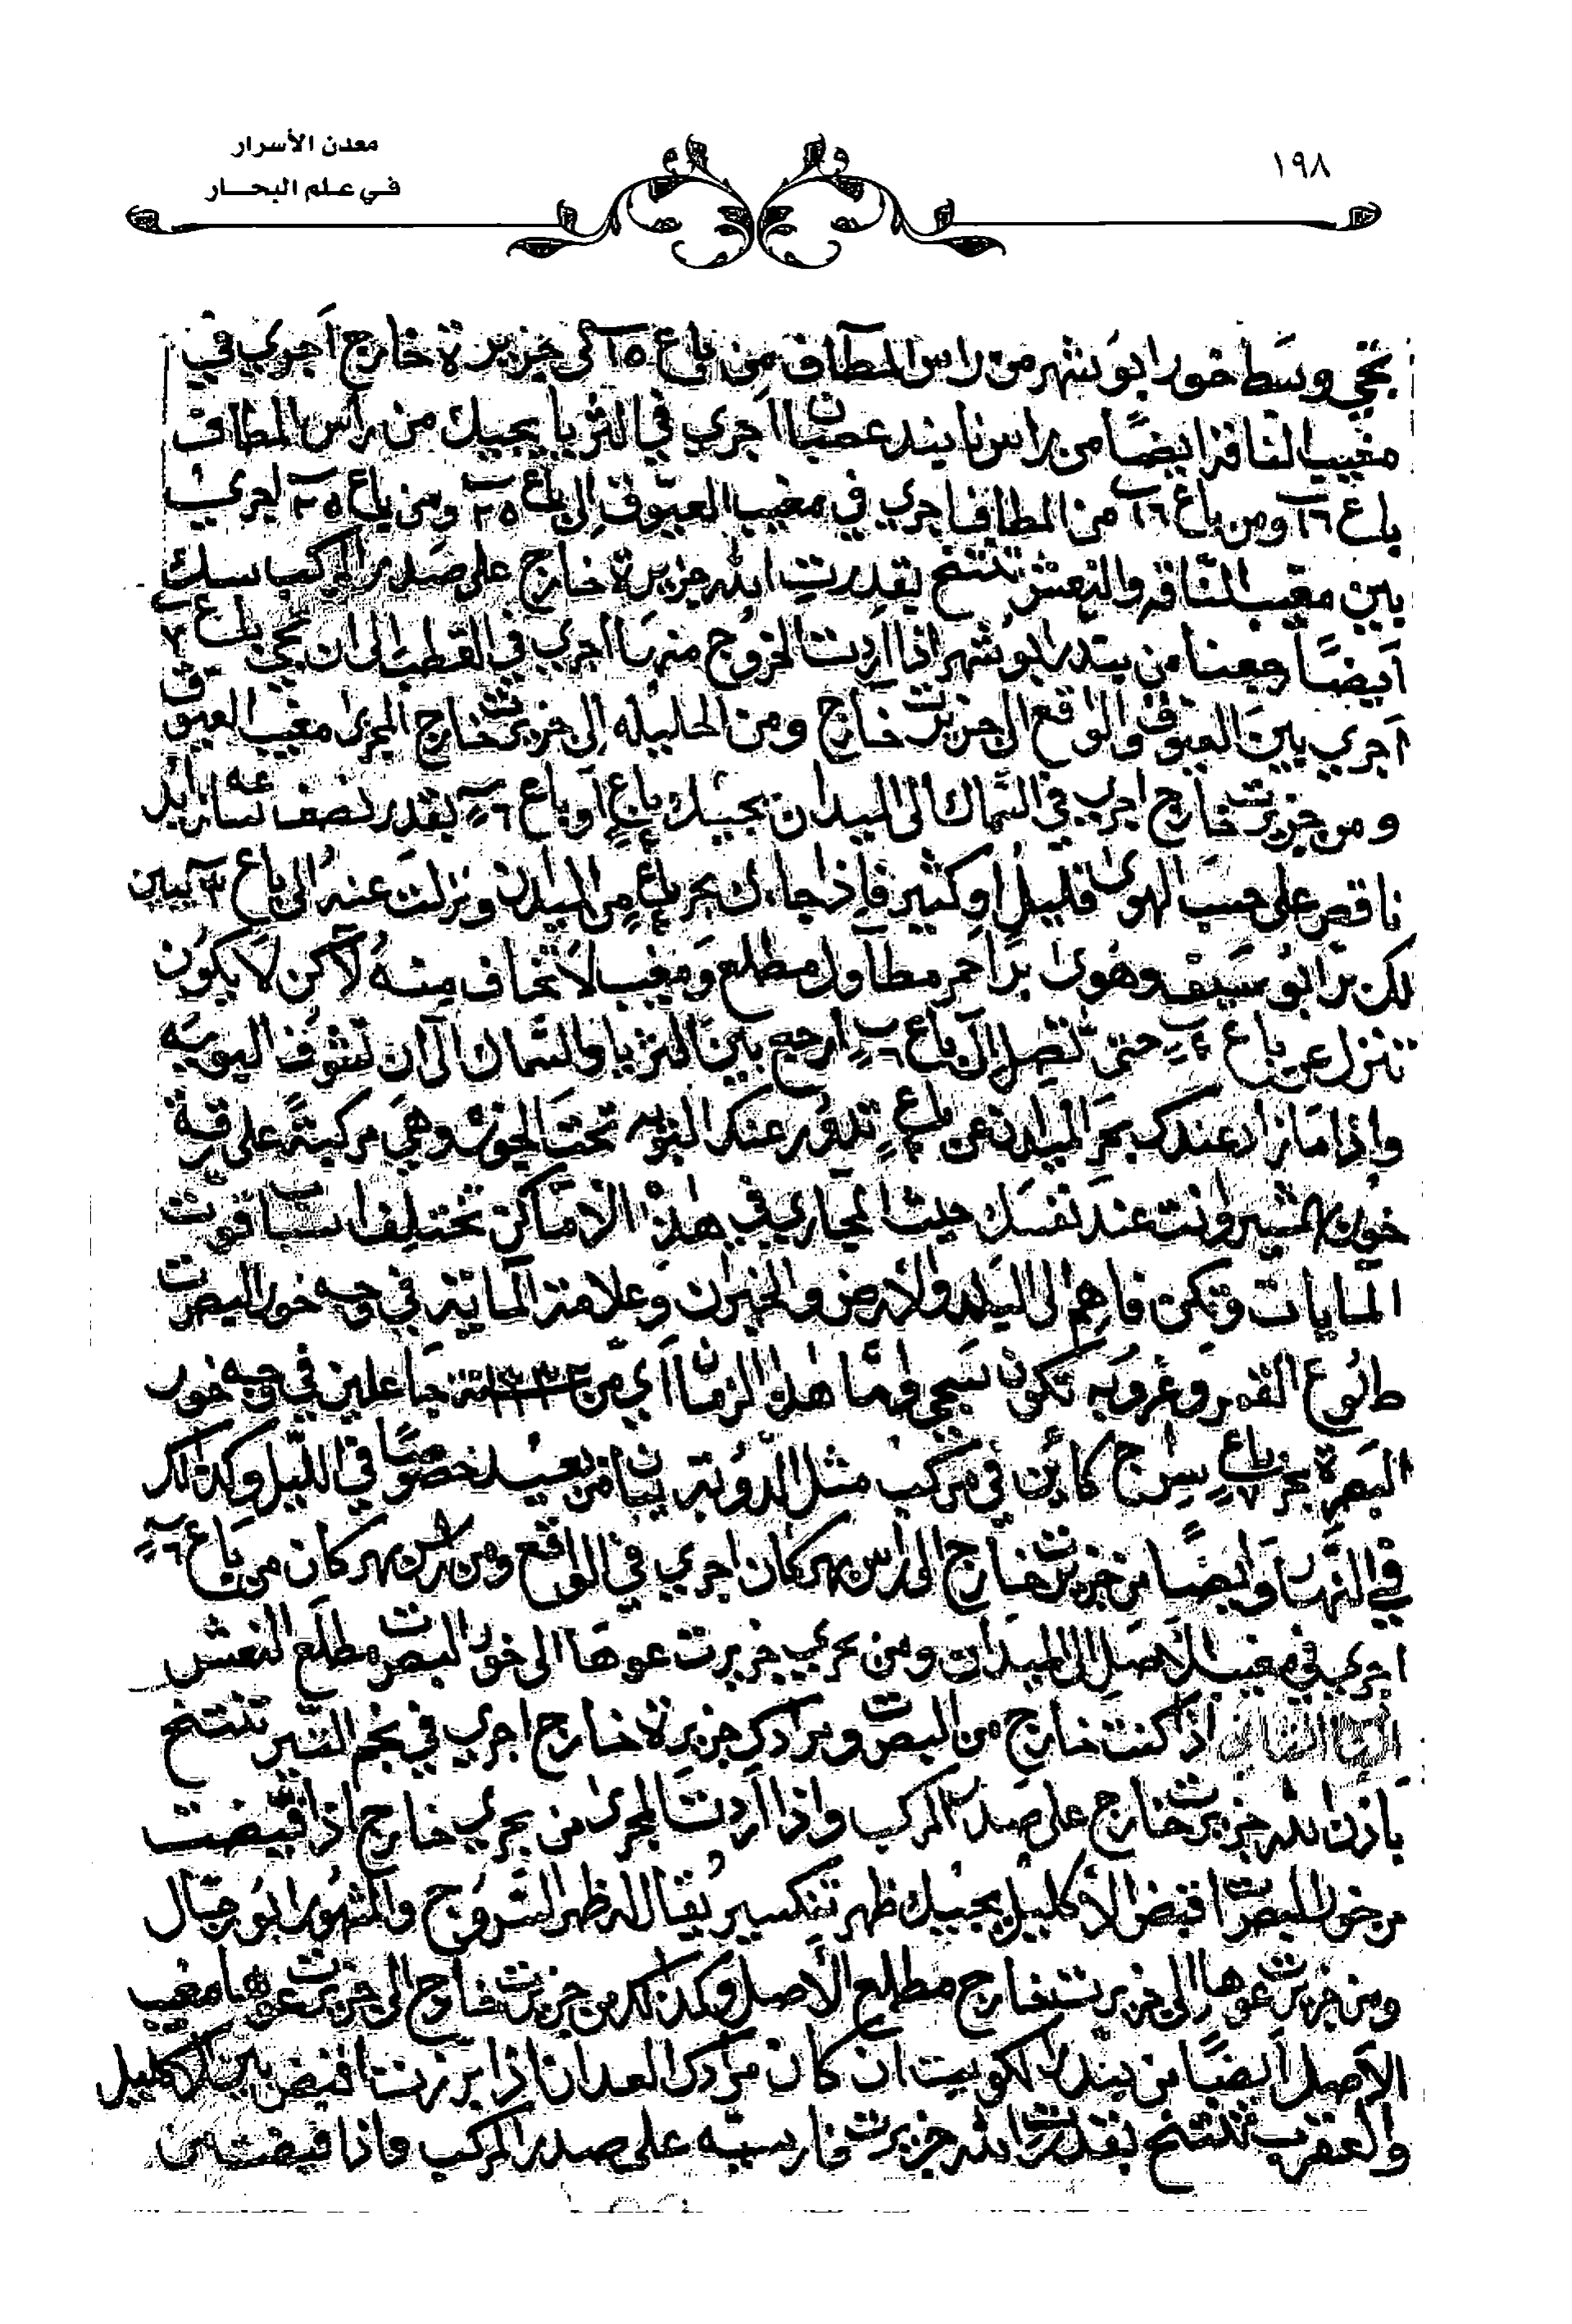 ١٩٨
معدن الأسرار
في علم البحار
تجي وسط خور ابو شهر من راس المطاف من باع ١٥ الى جزيرة خارج اجري في
مغيب الناقه ايضًا من راس نابند عصبان اجري في الثريا يجيك من راس المطاف
باع ١٦ ومن باع ١٦ من المطاف اجري في مغيب العيوق الى باع ٢٥ ومن باع ٢٥ اجري
بين مغيب الناقه والنعش تنتخ بقدرت الله جزيرة خارج على صدر المركب سك
ايضًا رجعنا من بندر ابو شهر اذا اردت الخروج منها اجري في القطب الى ان تجي باع ٧
اجري بين العيوق والواقع الى جزيرت خارج ومن الحليله الى جزيرت خارج المجرى مغيب العيوق
ومن جزيرت خارج اجري في السماك الى الميدان يجيك باع او باع ٦ بقدر نصف ساعه زايد
ناقص على حسب الهوى قليل او كثير فاذا جاءك بحر باع من الميدان ونزلت عنه الى باع ٣ يبين
لك بر ابو سيف وهوى بر احمر مطاول مطلع ومغيب لا تخاف منه لاكن لا يكون
تنزل عن باع ٤ حتى تصل الى باع ٦ ارجع بين الثريا والسماك الى ان تشوف البويه
واذا ما زاد عندك بحر الميدان عن باع ٤ تدور عندك البويه تحت الجوش وهي مركبة على رقبة
خور المشير وانت عند نفسك حيث المجاري في هذا الاماكن تختلف اسباب قوت
المايات وتكن فاهم الى البلد والارض والخيران وعلامة المايه في وجه خور البصرت
طلوع القمر وغروبه تكون سجي واما هذا الزمان اي من سنة جاعلين في وجه خور
البصرة بحر باع ٧ سراج كاين في مركب مثل الدوبة يبان من بعيد خصوصًا في الليل وكذالك
في النهار وايضًا من جزيرت خارج الى راس بهركان اجري في الواقع ومن راس بهركان من باع ٦
اجري في مغيب الاصل الى الميدان ومن بحري جزيرت عوها الى خور البصرت مطلع النعش
اذا كنت خارج من البصرت ومرادك جزيرة خارج اجري في نجم التير تنتخ
باذن الله جزيرت خارج على صدر المركب واذا اردت المجرى من بحري خارج اذا قبضت
من خور البصرت اقبض الاكليل يجيك ظهر تنكسير يقال له ظهر السروج والمشهور ابو رجال
ومن جزيرت عوها الى جزيرت خارج مطلع الاصل وكذالك من جزيرت خارج الى جزيرت عوها مغيب
الاصل ايضًا من بندر الكويت ان كان مرادك العدان اذا برزت اقبض بين الاكليل
والعقرب تنتخ بقدرت الله جزيرت فارسيه على صدر المركب واذا قبضت من